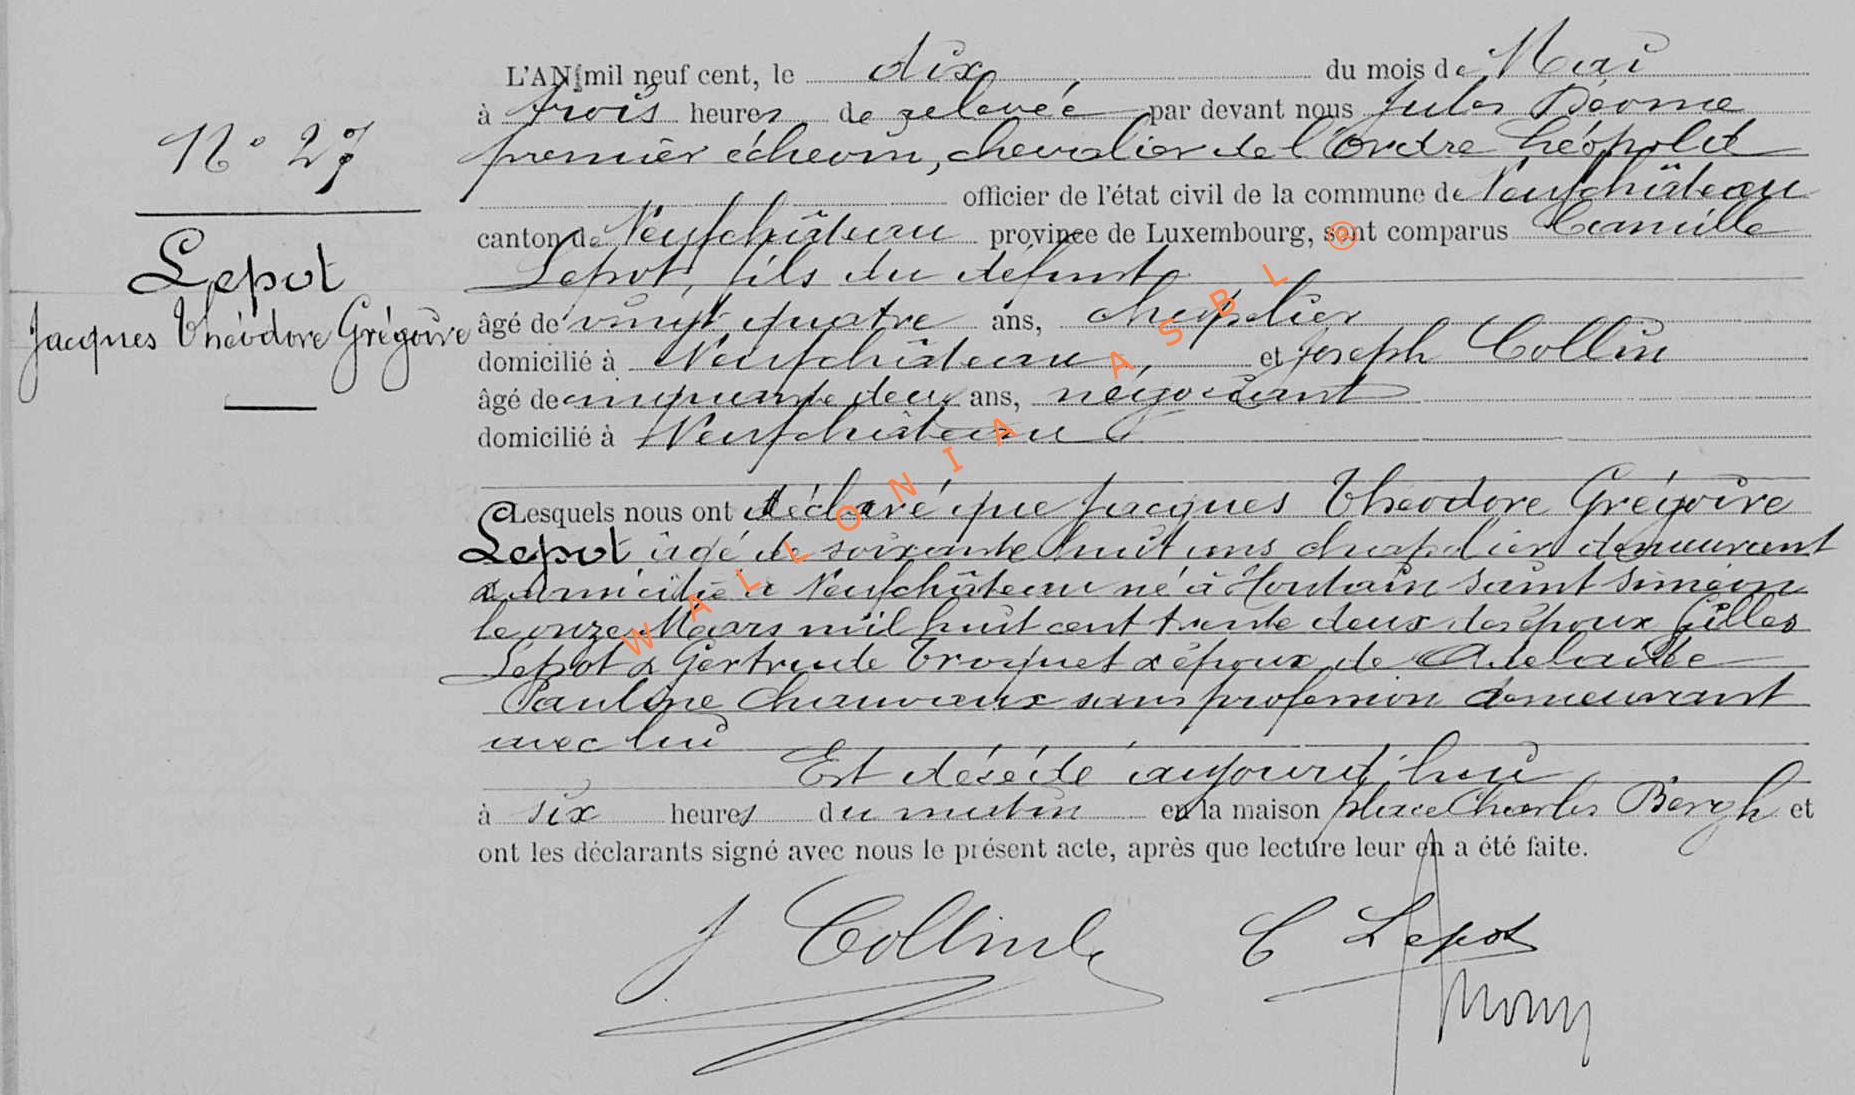 N° 27
Lepot
Jacques Théodore Grégoire
L'AN mil neuf cent, le dix du mois de Mai
à trois heures de relevée par devant nous Jules
premier échevin, chevalier de l'Ordre Léopold
officier de l'état civil de la commune de Neufchâteau
canton de Neufchâteau province de Luxembourg, sont comparus Camille
Lepot, fils du défunt
âgé de vingt quatre ans, chapelier
domicilié à Neufchâteau, et Joseph Collin
âgé de cinquante deux ans, négociant
domicilié à Neufchâteau
Lesquels nous ont déclaré que Jacques Théodore Grégoire
Lepot âgé de soixante huit ans chapelier demeurant
& domicilié à Neufchâteau né à Houtain Saint Siméon
le onze Mars mil huit cent trente deux des époux Gilles
Lepot & Gertrude Troquet & époux de Adelaïde
Pauline Chauveaux sans profession demeurant
avec lui
Est décédé aujourd'hui
à six heures du matin en la maison place Charles Bergh et
ont les déclarants signé avec nous le présent acte, après que lecture leur en a été faite.
J Collin C Lepot
WALLONIA ASBL ®